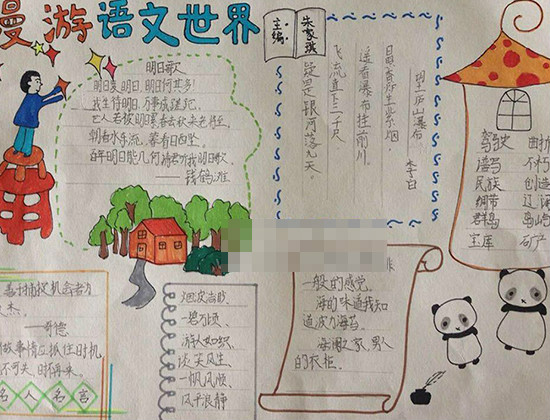 漫游语文世界
主编:
朱家琪
明日歌
明日复明日,明日何其多!
我生待明日,万事成蹉跎。
世人若被明日累,春去秋来老将至。
朝看水东流,暮看日西坠。
百年明日能几何?请君听我明日歌。
——钱鹤滩
望庐山瀑布
李白
日照香炉生紫烟,
遥看瀑布挂前川。
飞流直下三千尺,
疑是银河落九天。
驾驶
民族
创造
绑带
群岛
岛屿
宝库
矿产
一般的感觉。
海的味道我知
道波力海苔。
海澜之家,男人
的衣柜。
烟波浩渺
一碧万顷、
游人如织、
谈笑风生、
一帆风顺、
风平浪静
善于捕捉机会者为
杰。
——哥德
做事情应抓住时机
不可失,时不再来。
名人名言